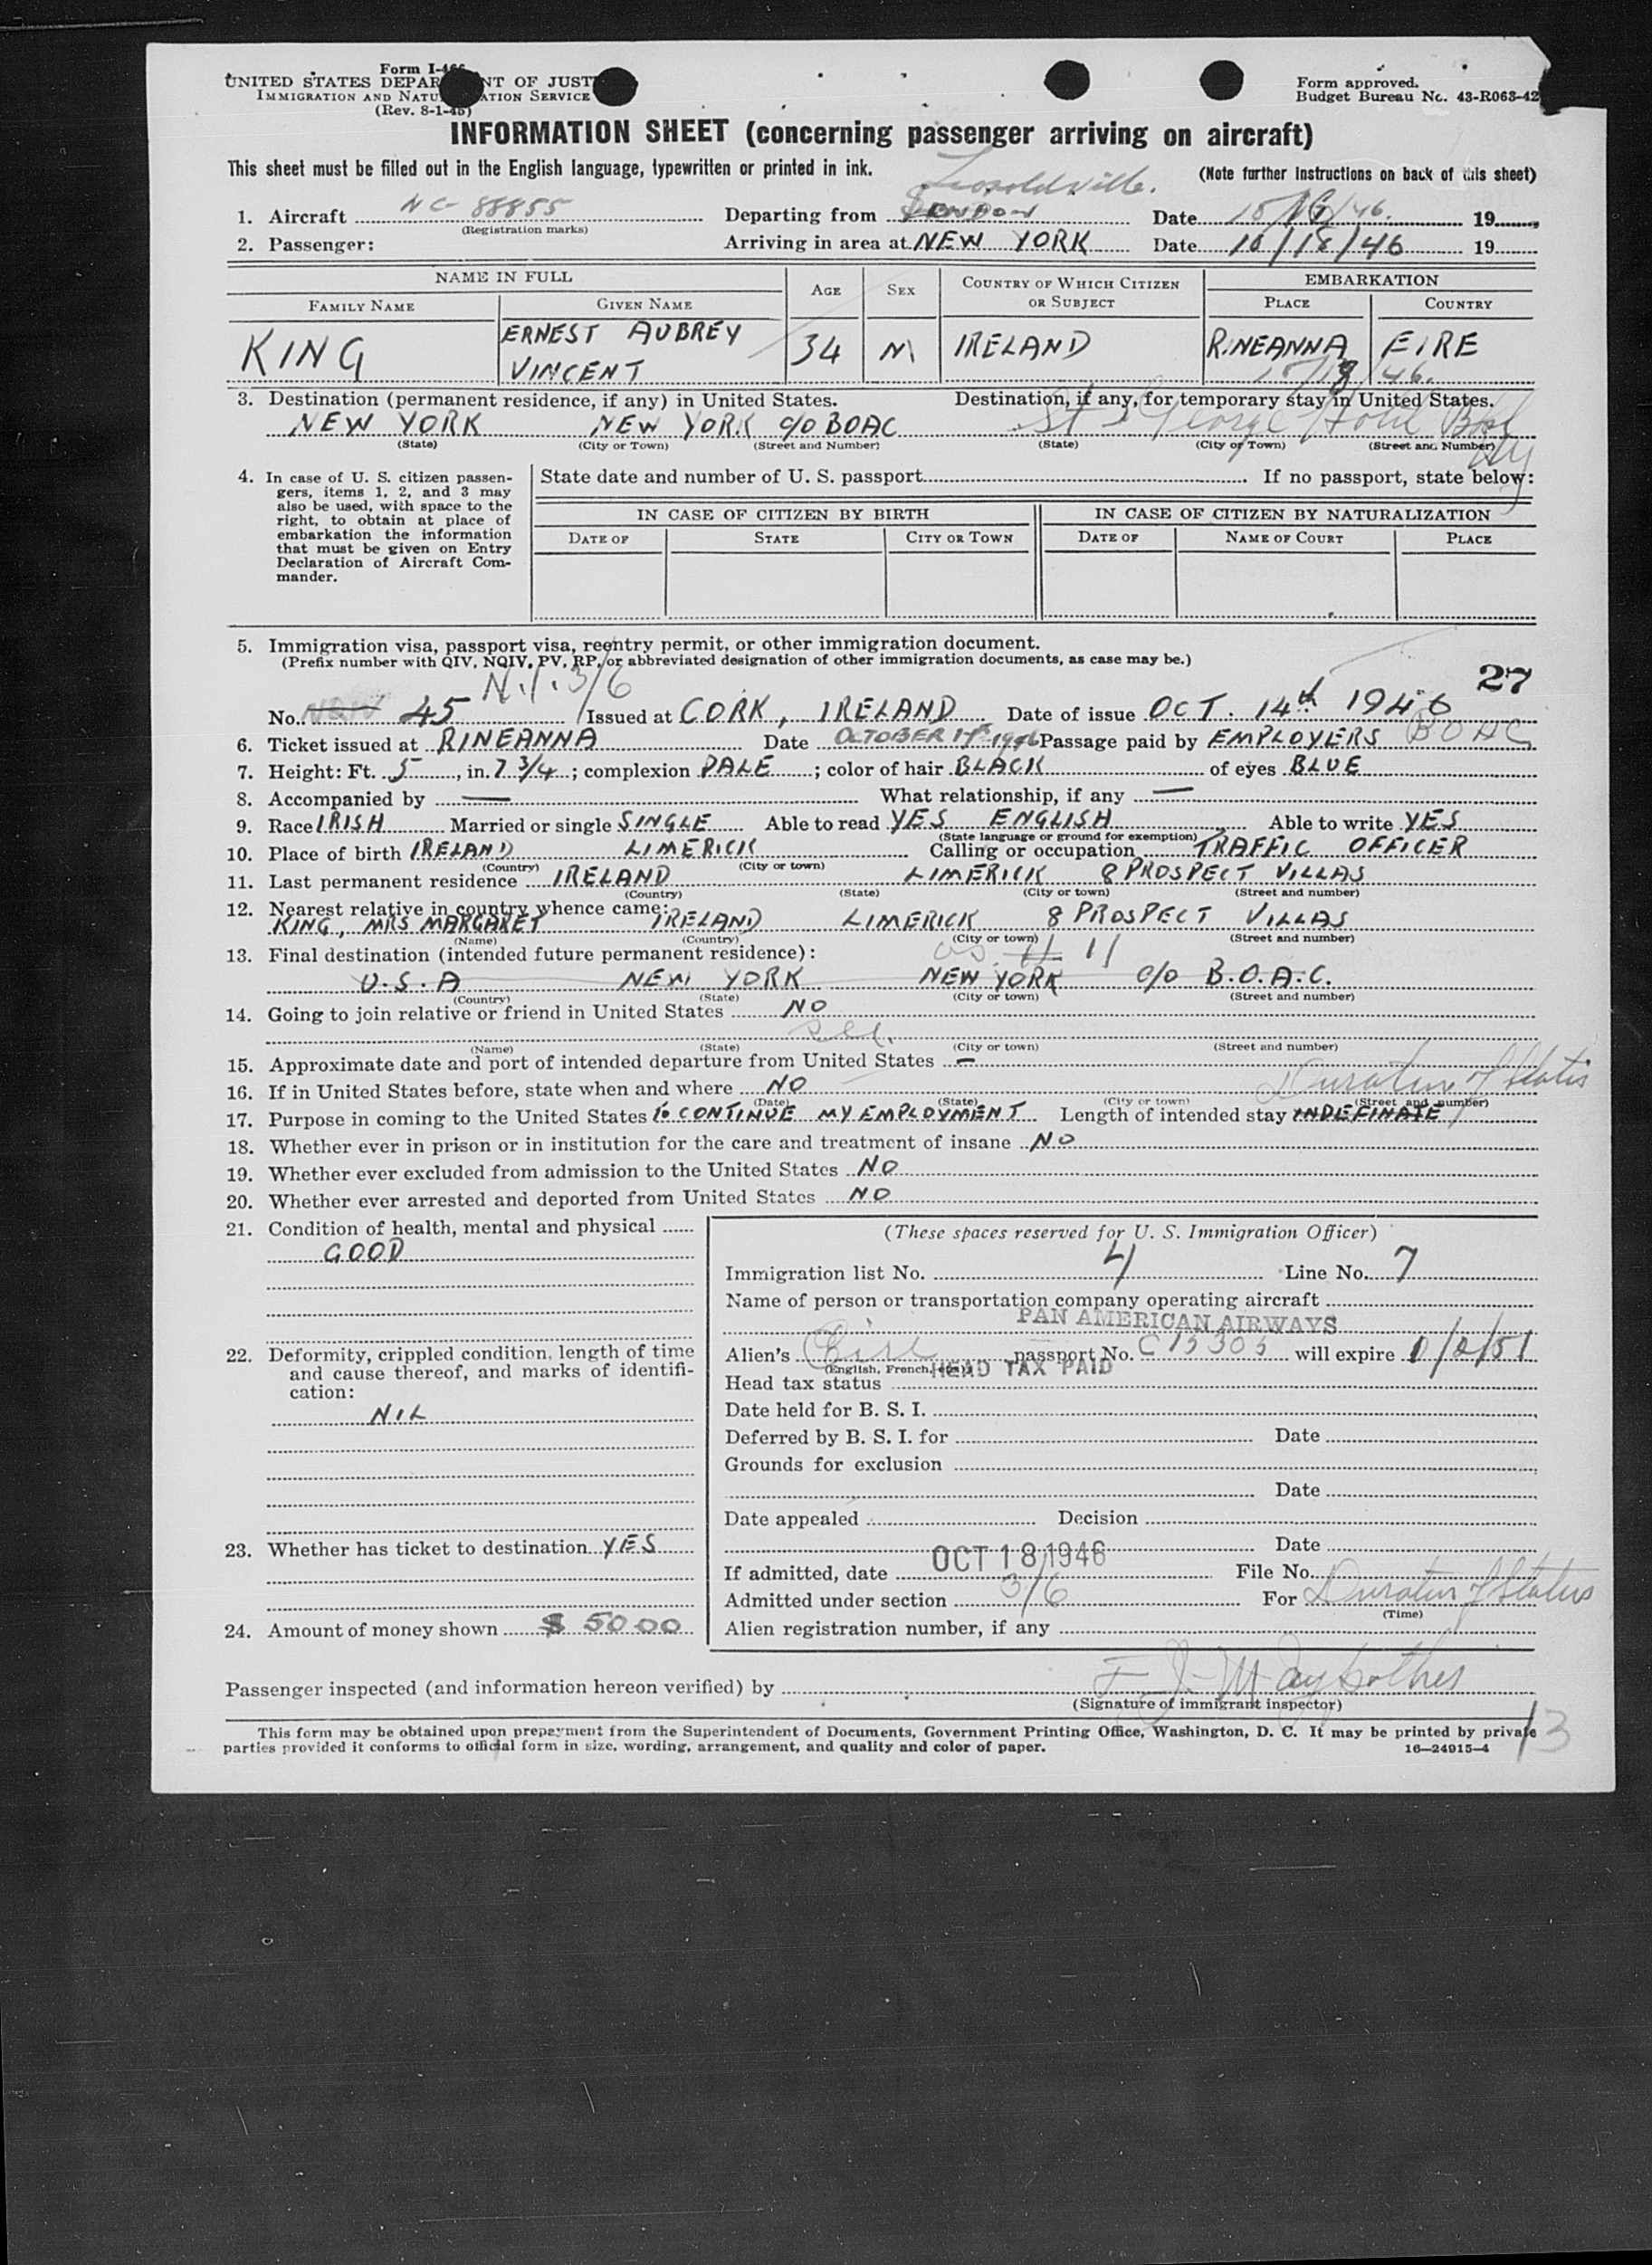 Form I-466
UNITED STATES DEPARTMENT OF JUSTICE
IMMIGRATION AND NATURALIZATION SERVICE
(Rev. 8-1-45)
Form approved.
Budget Bureau No. 43-R063-42
INFORMATION SHEET (concerning passenger arriving on aircraft)
This sheet must be filled out in the English language, typewritten or printed in ink.
(Note further instructions on back of this sheet)
Leopoldville.
1. Aircraft NC-88855 Departing from LONDON Date 10/16/46. 19
(Registration marks)
2. Passenger: Arriving in area at NEW YORK Date 10/18/46 19
NAME IN FULL AGE SEX COUNTRY OF WHICH CITIZEN OR SUBJECT EMBARKATION
FAMILY NAME GIVEN NAME PLACE COUNTRY
KING ERNEST AUBREY VINCENT 34 M IRELAND RINEANNA EIRE
46.
3. Destination (permanent residence, if any) in United States. Destination, if any, for temporary stay in United States.
NEW YORK NEW YORK c/o BOAC St George Hotel
(State) (City or Town) (Street and Number) (State) (City or Town) (Street and Number)
4. In case of U. S. citizen passen-
gers, items 1, 2, and 3 may
also be used, with space to the
right, to obtain at place of
embarkation the information
that must be given on Entry
Declaration of Aircraft Com-
mander.
State date and number of U. S. passport If no passport, state below:
IN CASE OF CITIZEN BY BIRTH IN CASE OF CITIZEN BY NATURALIZATION
DATE OF STATE CITY OR TOWN DATE OF NAME OF COURT PLACE
5. Immigration visa, passport visa, reentry permit, or other immigration document.
(Prefix number with QIV, NQIV, PV, RP, or abbreviated designation of other immigration documents, as case may be.)
N.I. 3/6
27
No. 45 Issued at CORK, IRELAND Date of issue OCT. 14th 1946
6. Ticket issued at RINEANNA Date OCTOBER 17th 1946 Passage paid by EMPLOYERS BOAC
7. Height: Ft. 5, in. 7 3/4; complexion PALE; color of hair BLACK of eyes BLUE
8. Accompanied by — What relationship, if any —
9. Race IRISH Married or single SINGLE Able to read YES ENGLISH Able to write YES
(State language or ground for exemption)
10. Place of birth IRELAND LIMERICK Calling or occupation TRAFFIC OFFICER
(Country) (City or town)
11. Last permanent residence IRELAND LIMERICK 8 PROSPECT VILLAS
(Country) (State) (City or town) (Street and number)
12. Nearest relative in country whence came:
KING, MRS MARGARET IRELAND LIMERICK 8 PROSPECT VILLAS
(Name) (Country) (City or town) (Street and number)
13. Final destination (intended future permanent residence): as 11
U.S.A NEW YORK NEW YORK c/o B.O.A.C.
(Country) (State) (City or town) (Street and number)
14. Going to join relative or friend in United States NO
(Name) (State) (City or town) (Street and number)
15. Approximate date and port of intended departure from United States –
16. If in United States before, state when and where NO Duration of Status
(Date) (State) (City or town) (Street and number)
17. Purpose in coming to the United States to CONTINUE MY EMPLOYMENT Length of intended stay INDEFINATE
18. Whether ever in prison or in institution for the care and treatment of insane NO
19. Whether ever excluded from admission to the United States NO
20. Whether ever arrested and deported from United States NO
21. Condition of health, mental and physical
GOOD
22. Deformity, crippled condition, length of time
and cause thereof, and marks of identifi-
cation:
NIL
23. Whether has ticket to destination YES
24. Amount of money shown $ 50 00
(These spaces reserved for U. S. Immigration Officer)
Immigration list No. 4 Line No. 7
Name of person or transportation company operating aircraft
PAN AMERICAN AIRWAYS
Alien's Eire passport No. C 15305 will expire
(English, French, etc.)
HEAD TAX PAID
Head tax status
Date held for B. S. I.
Deferred by B. S. I. for Date
Grounds for exclusion
Date
Date appealed Decision
Date
If admitted, date OCT 18 1946 File No.
Admitted under section 3/6 For Duration of Status
(Time)
Alien registration number, if any
Passenger inspected (and information hereon verified) by
(Signature of immigrant inspector)
This form may be obtained upon prepayment from the Superintendent of Documents, Government Printing Office, Washington, D. C. It may be printed by private
parties provided it conforms to official form in size, wording, arrangement, and quality and color of paper. 16—24915-4
13